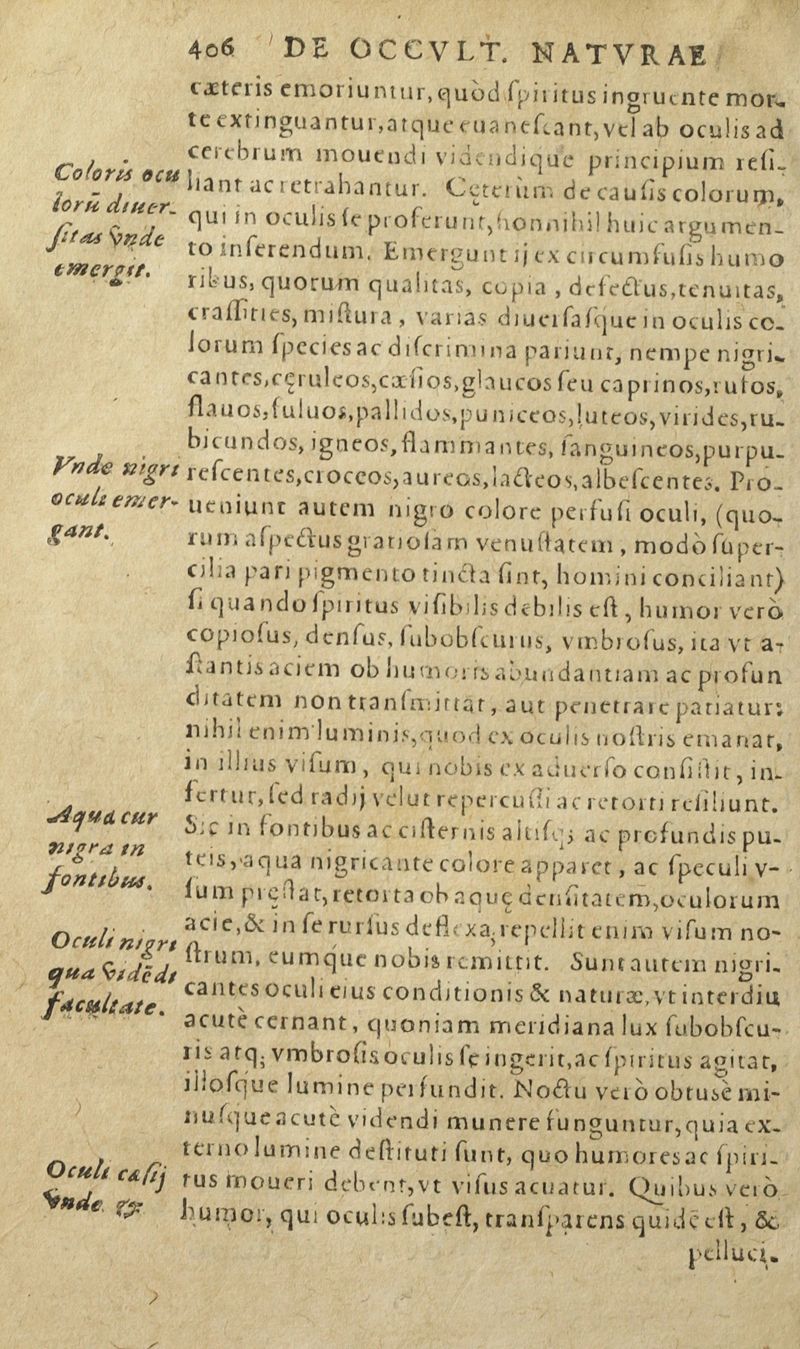 406 DE OCCVLT. NATVRAE
cæteris emoriuntur, quòd ſpiritus ingruente mor-
te extinguantur, atque euaneſcant, vel ab oculis ad
cerebrum mouendi videndique principium reſi-
Coloris ocu
liant ac retrahantur. Ceterùm de cauſis colorum,
lorũ diuer-
qui in oculis ſe proferunt, nonnihil huic argumen-
ſitas vnde
to inferendum. Emergunt ij ex circumfuſis humo
emergit.
ribus, quorum qualitas, copia, defectus, tenuitas,
craſſities, miſtura, varias diuerſaſque in oculis co-
lorum ſpecies ac diſcrimina pariunt, nempe nigri-
cantes, cęruleos, cæſios, glaucos ſeu caprinos, rufos,
flauos, fuluos, pallidos, puniceos, luteos, virides, ru-
bicundos, igneos, flammantes, ſanguineos, purpu-
Vnde nigri
reſcentes, croceos, aureos, lacteos, albeſcentes. Pro-
oculi emer-
ueniunt autem nigro colore perfuſi oculi, (quo-
gant.
rum aſpectus gratioſam venuſtatem, modò ſuper-
cilia pari pigmento tincta ſint, homini conciliant)
ſi quando ſpiritus viſibilis debilis eſt, humor verò
copioſus, denſus, ſubobſcurus, vmbroſus, ita vt a-
ſtantis aciem ob humoris abundantiam ac profun
ditatem non tranſmittat, aut penetrare patiatur:
nihil enim luminis, quod ex oculis noſtris emanat,
in illius viſum, qui nobis ex aduerſo conſiſtit, in-
fertur, ſed radij velut repercuſſi ac retorti reſiliunt.
Aqua cur
Sic in fontibus ac ciſternis altiſq; ac profundis pu-
nigra in
teis, aqua nigricante colore apparet, ac ſpeculi v-
fontibus.
ſum pręſtat, retorta ob aquę denſitatem, oculorum
acie, & in ſe rurſus deflexa, repellit enim viſum no-
Oculi nigri
ſtrum, eumque nobis remittit. Sunt autem nigri-
qua vidẽdi
cantes oculi eius conditionis & naturæ, vt interdiu
facultate.
acutè cernant, quoniam meridiana lux ſubobſcu-
ris atq; vmbroſis oculis ſe ingerit, ac ſpiritus agitat,
illoſque lumine perfundit. Noctu verò obtusè mi-
nuſque acutè videndi munere funguntur, quia ex-
terno lumine deſtituti ſunt, quo humores ac ſpiri-
Oculi cæſij
tus moueri debent, vt viſus acuatur. Quibus verò
vnde.
humor, qui oculis ſubeſt, tranſparens quidẽ eſt, &
pelluci-